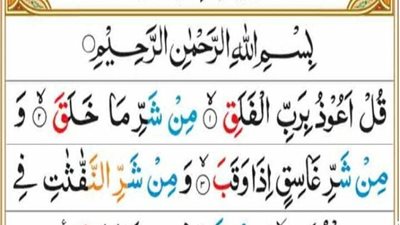 بِسْمِ اللهِ الرَّحْمٰنِ الرَّحِيْمِ
قُلْ اَعُوْذُ بِرَبِّ الْفَلَقِ ۙ﴿۱﴾ مِنْ شَرِّ مَا خَلَقَ ۙ﴿۲﴾ وَ
مِنْ شَرِّ غَاسِقٍ اِذَا وَقَبَ ۙ﴿۳﴾ وَ مِنْ شَرِّ النَّفّٰثٰتِ فِي